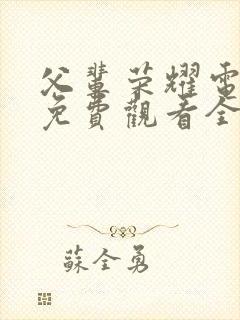 父輩榮耀電
免費觀看全
蘇全勇